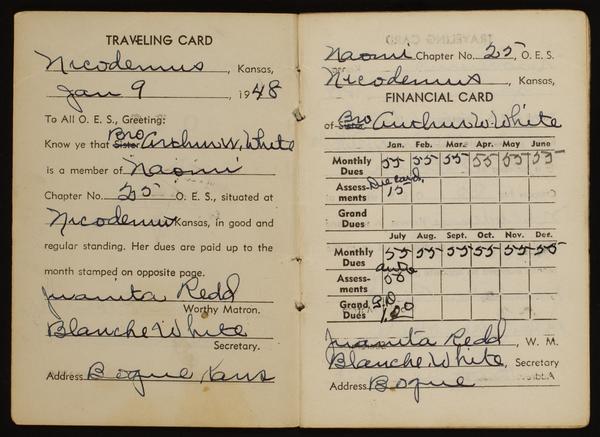 TRAVELING CARD
Nicodemus, Kansas,
Jan 9, 1948
To All O. E. S., Greeting:
Bro
Know ye that Sister Arthur W. White
is a member of Naomi
Chapter No. 25 O. E. S., situated at
Nicodemus Kansas, in good and
regular standing. Her dues are paid up to the
month stamped on opposite page.
Juanita Redd
Worthy Matron.
Blanche White
Secretary.
Address Bogue, Kans
Naomi Chapter No. 25, O. E. S.
Nicodemus, Kansas,
FINANCIAL CARD
Bro
of Sister Arthur W. White
Jan. Feb. Mar. Apr. May June
Monthly Dues 55 55 55 55 55 55
Assessments Due Card, 15
Grand Dues
July Aug. Sept. Oct. Nov. Dec.
Monthly Dues 55 55 55 55 55 55
Assessments 50
Grand Dues 1.00
Juanita Redd, W. M.
Blanche White, Secretary
Address Bogue